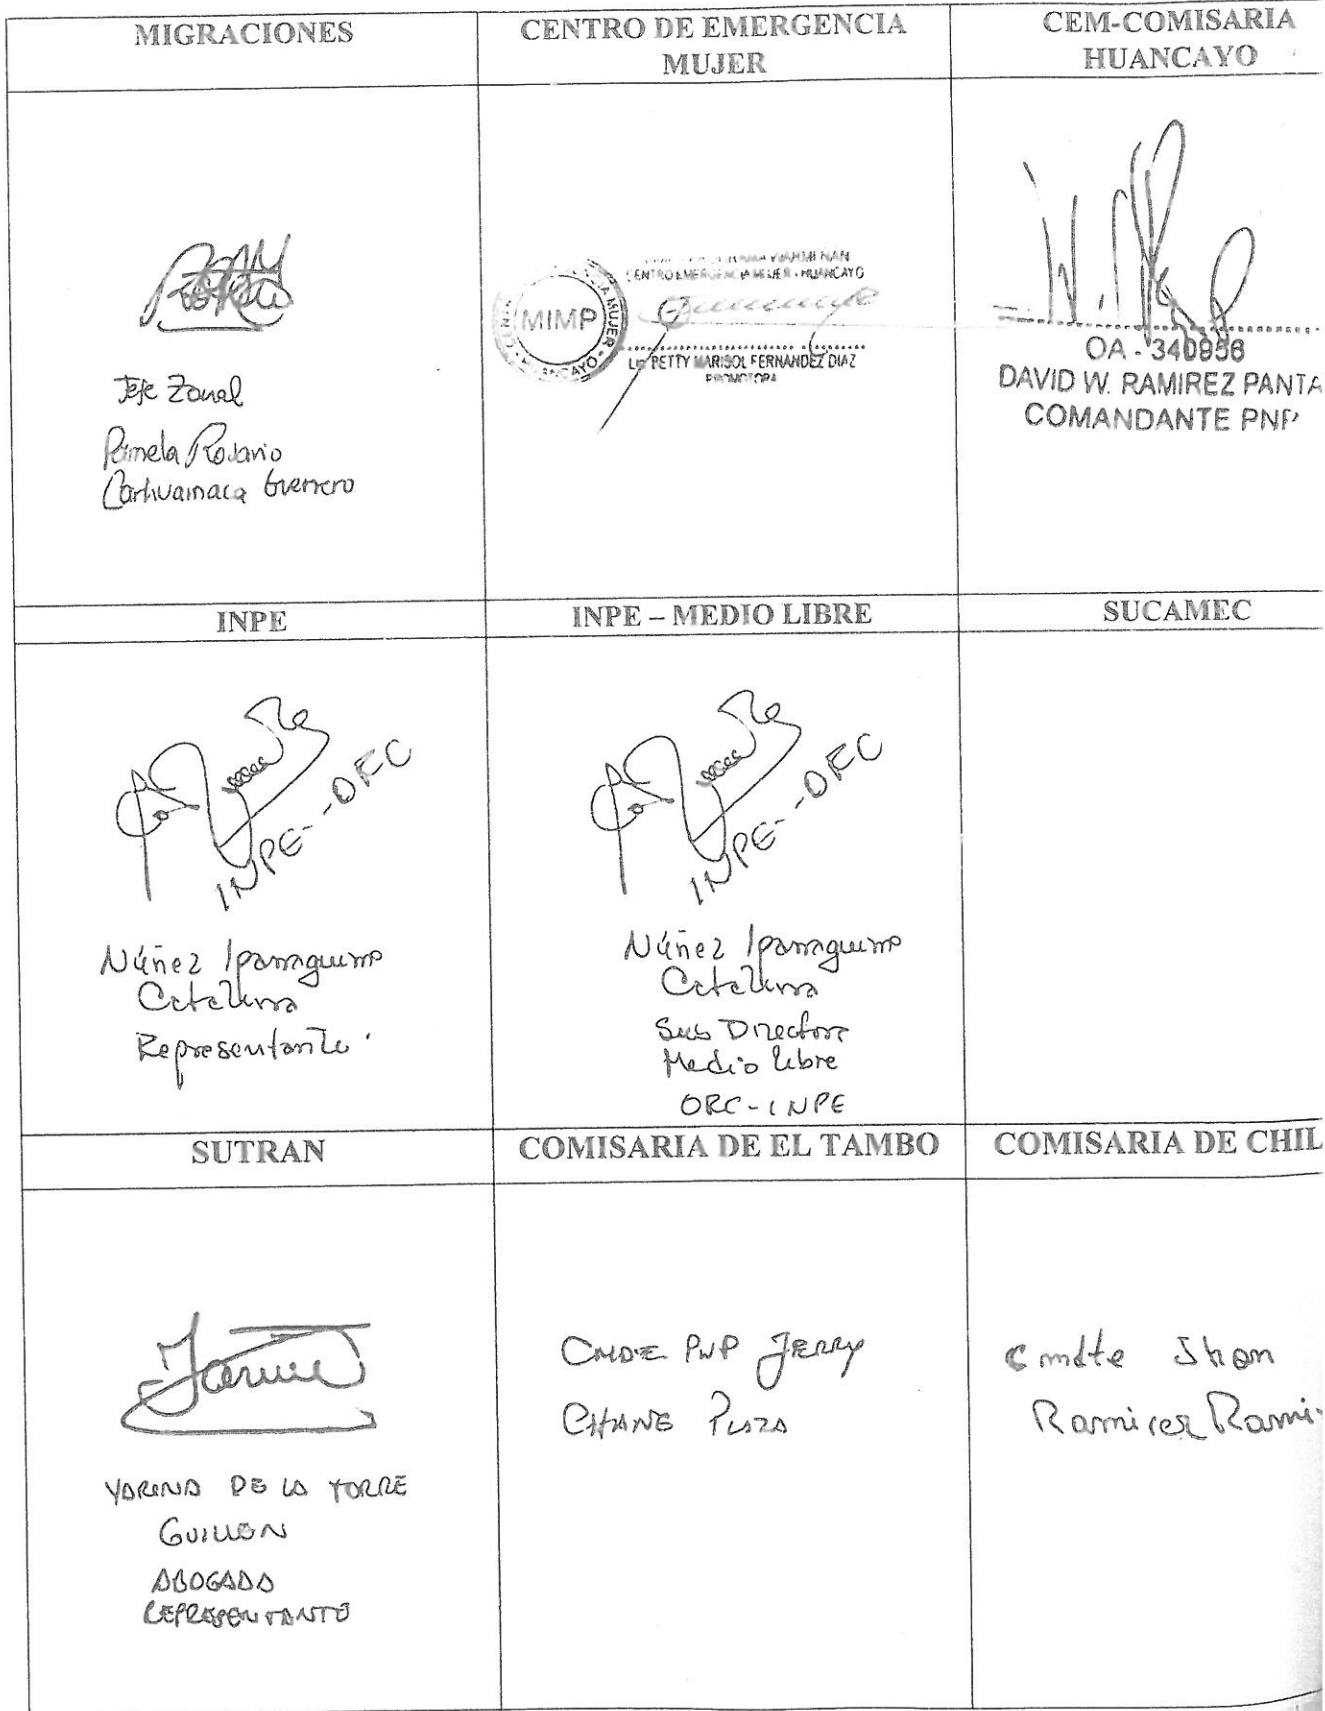 MIGRACIONES
CENTRO DE EMERGENCIA
MUJER
CEM-COMISARIA
HUANCAYO
Jefe Zonal
Pamela Rosario
Carhuamaca Guerrero
CENTRO EMERGENCIA MUJER - HUANCAYO
MIMP
Lic. BETTY MARISOL FERNANDEZ DIAZ
PROMOTORA
OA - 340956
DAVID W. RAMIREZ PANTA
COMANDANTE PNP
INPE
INPE – MEDIO LIBRE
SUCAMEC
INPE--ORC
Núñez Iparraguirre
Catalina
Representante.
INPE--ORC
Núñez Iparraguirre
Catalina
Sub Directora
Medio libre
ORC-INPE
SUTRAN
COMISARIA DE EL TAMBO
COMISARIA DE CHIL
YARINA DE LA TORRE
GUILLEN
ABOGADA
REPRESENTANTE
CMDTE PNP JERRY
CHANE
Cmdte Jhon
Ramirez Rami